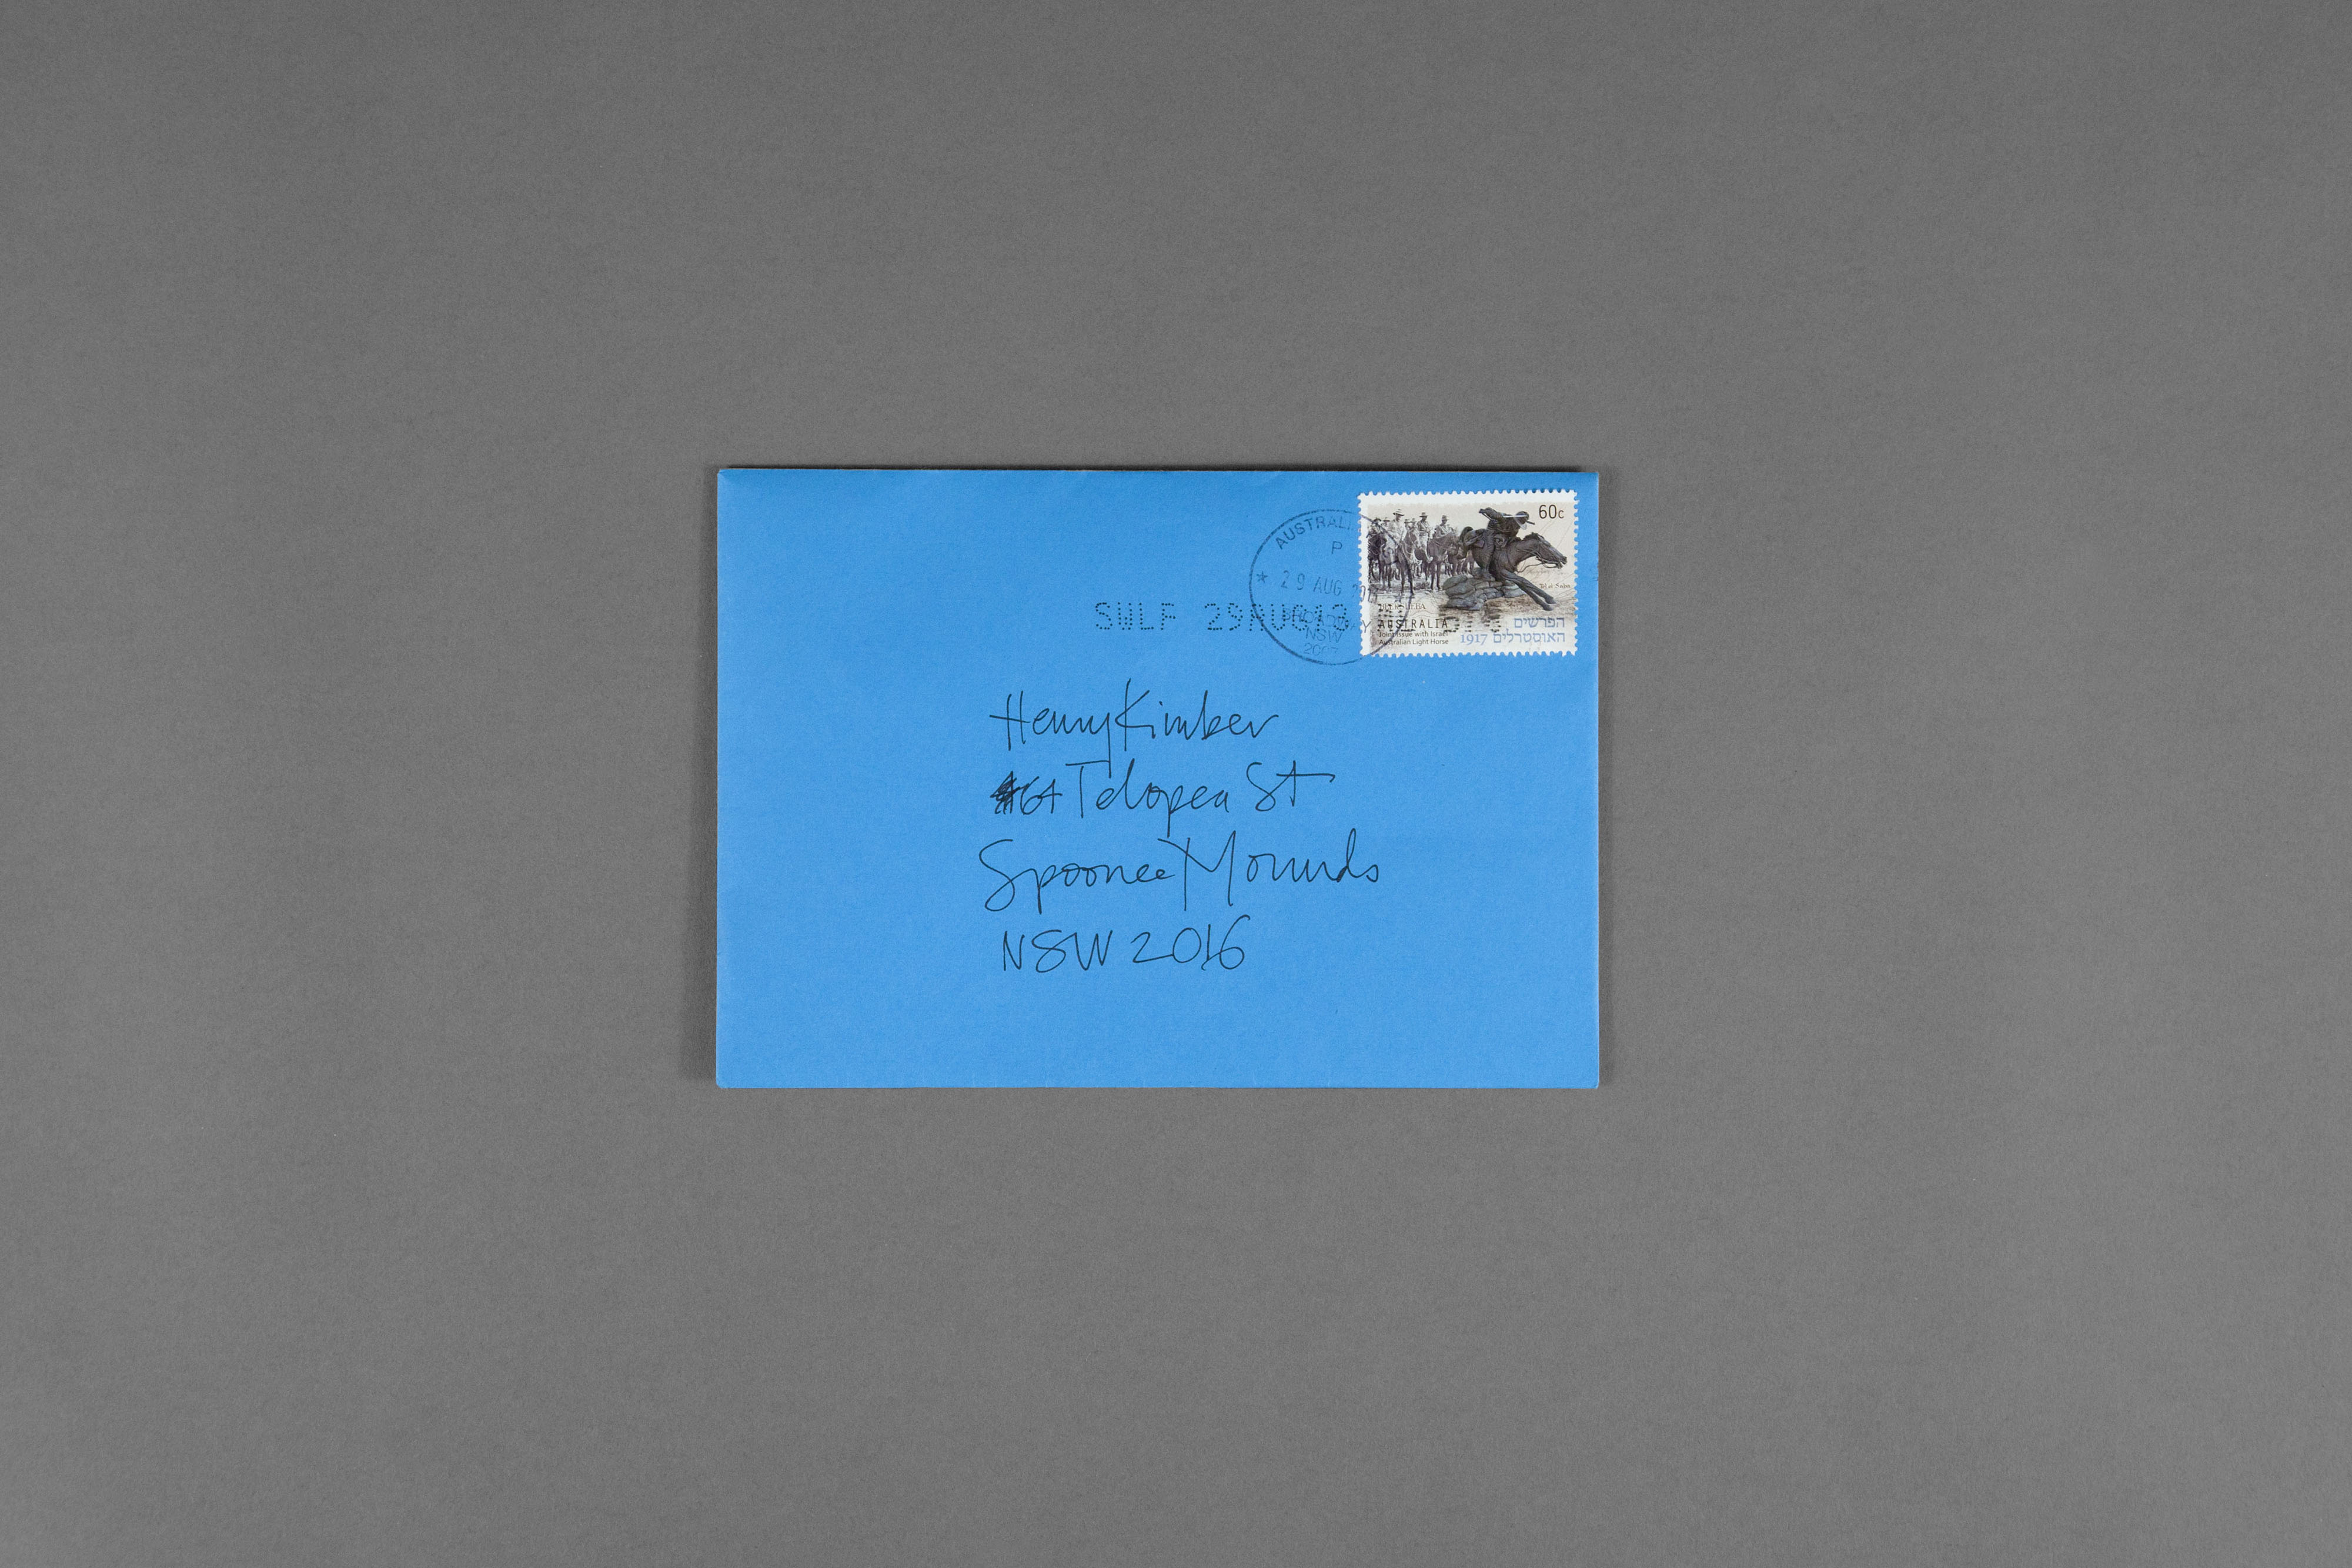 60c
AUSTRALI
P
29 AUG 201
SWLF 29AUG13
NSW
2007
AUSTRALIA
Joint Issue with Israel
Australian Light Horse
הפרשים
האוסטרלים 1917
Henry Kimber
64 Telopea St
Spoonee Mounds
NSW 2016